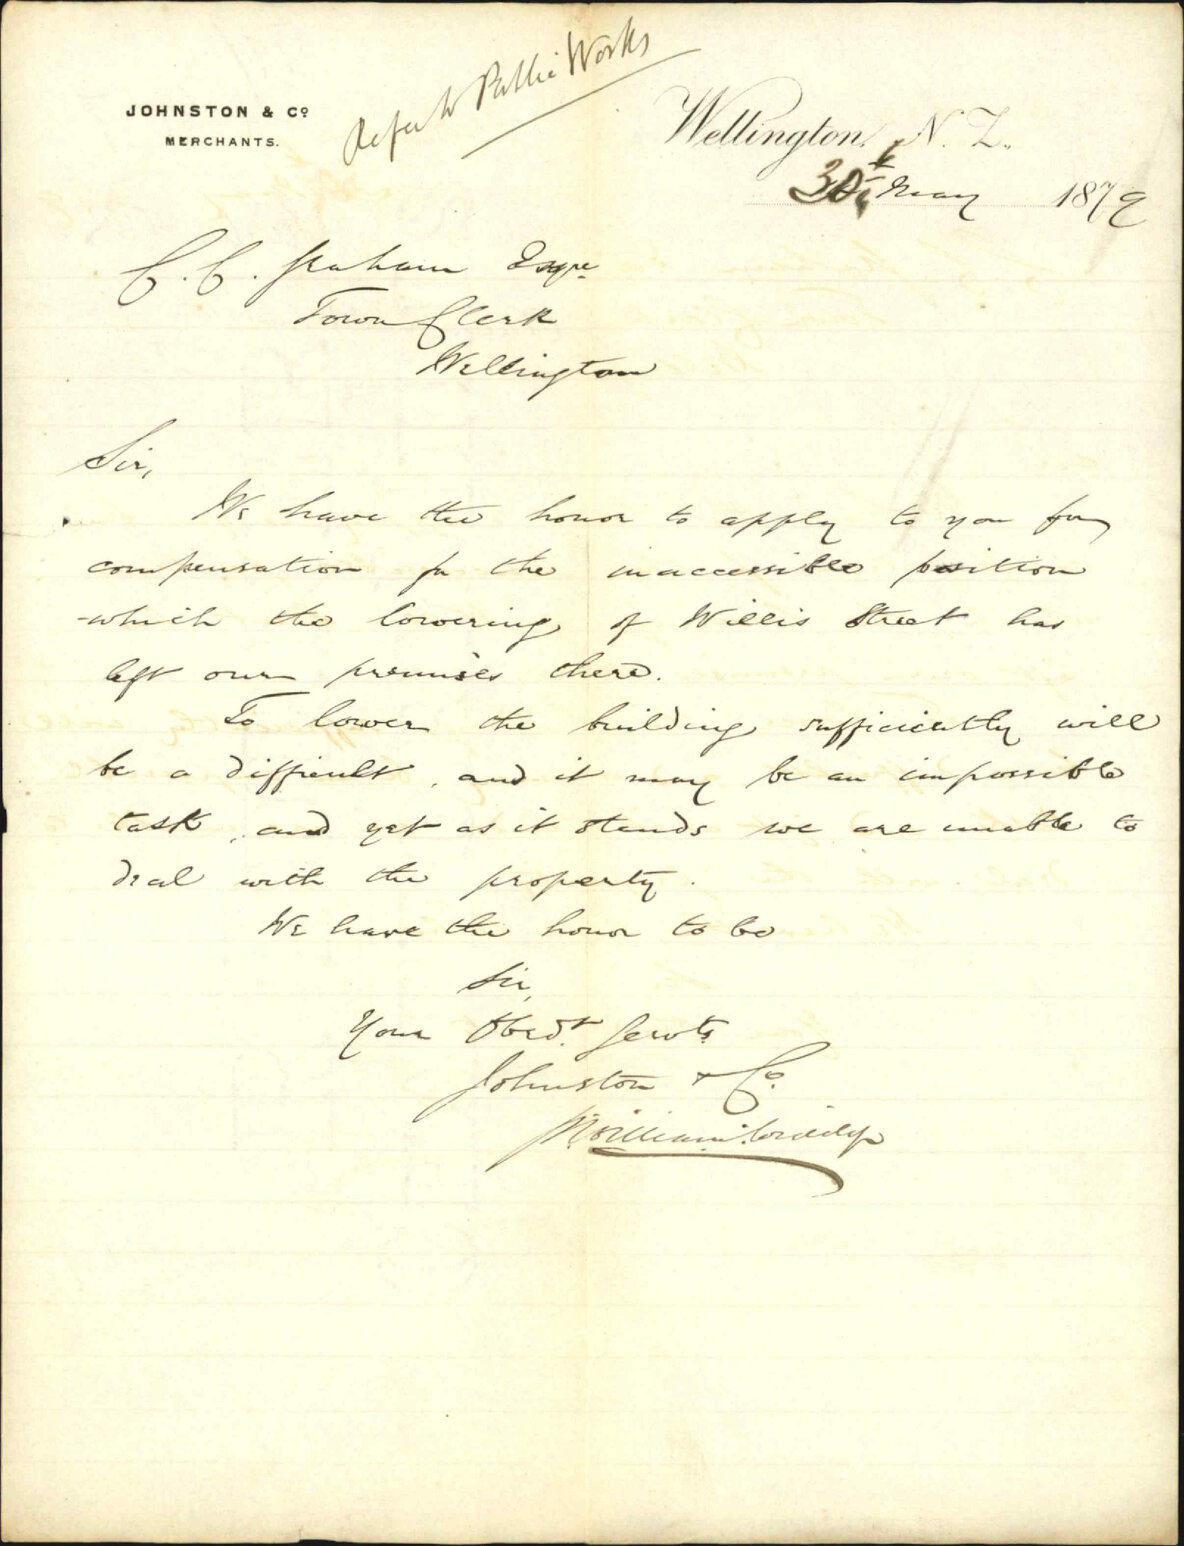 Refer to Public Works
JOHNSTON & Co
MERCHANTS.
Wellington, N. Z.
30th May 1879
C. C. Graham Esqre
Town Clerk
Wellington
Sir,
We have the honor to apply to you for
compensation for the inaccessible position
which the lowering of Willis Street has
left our premises there.
To lower the building sufficiently will
be a difficult, and it may be an impossible
task, and yet as it stands we are unable to
deal with the property.
We have the honor to be
Sir,
Your Obedt. Servts
Johnston & Co.